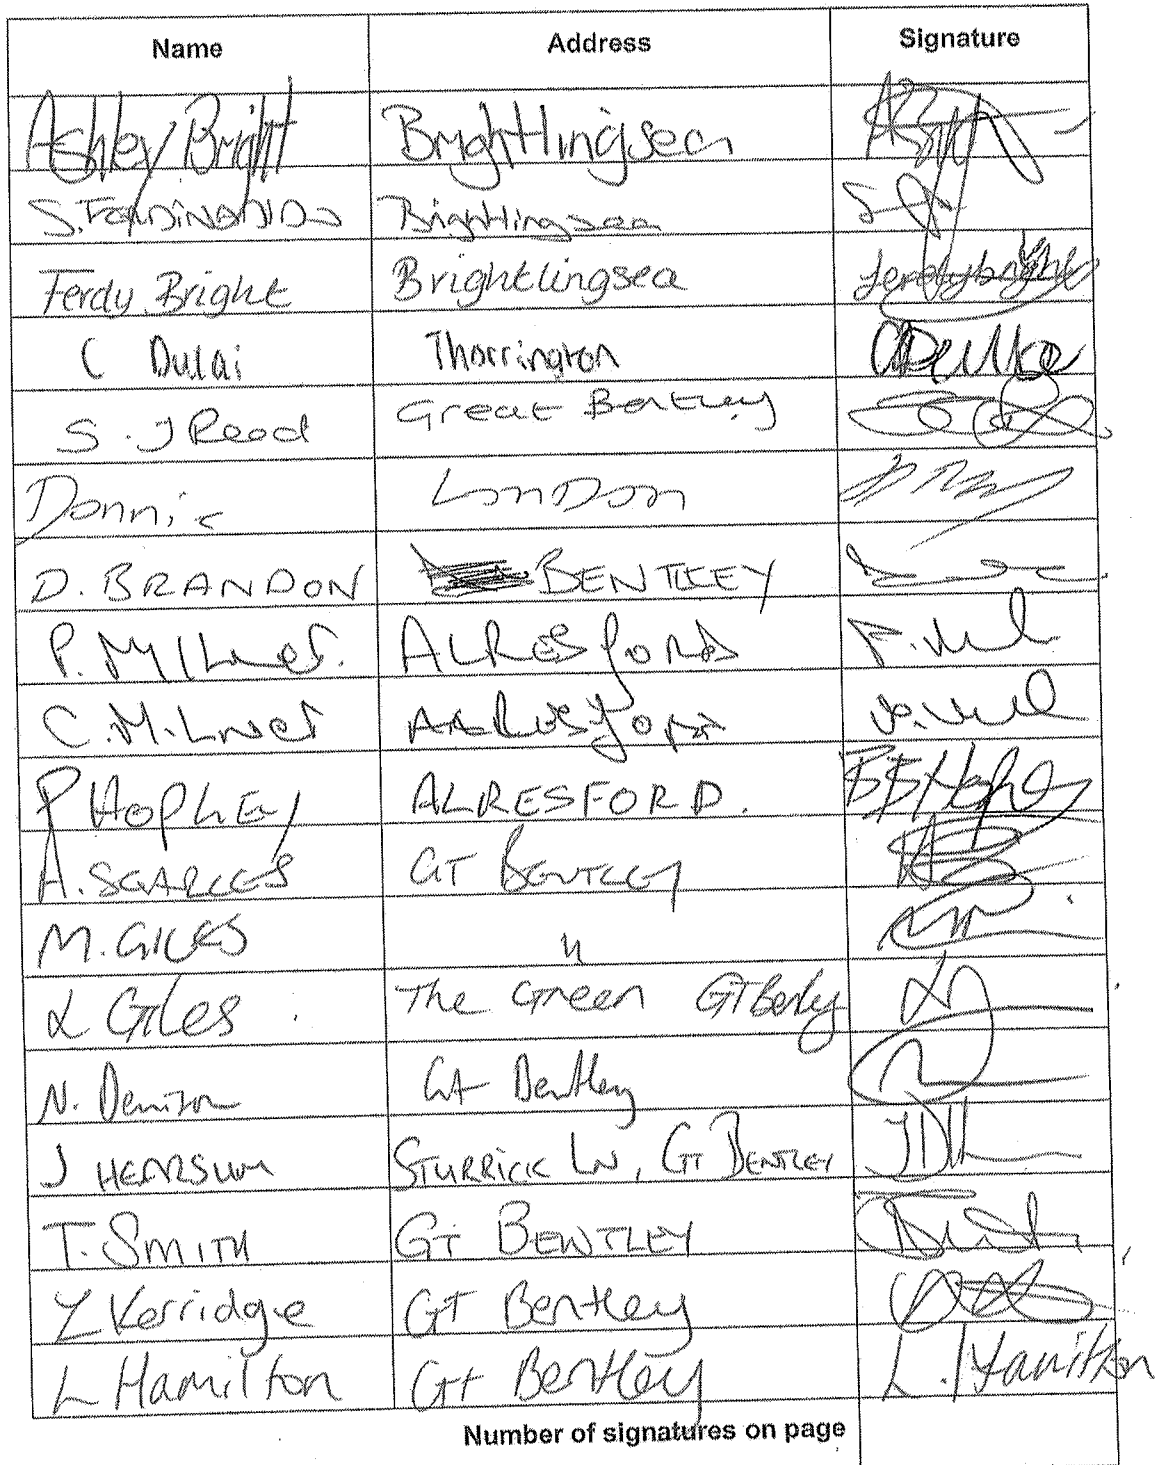 Name Address Signature
Ashley Bright Brightlingsea
S. FERDINANDO Brightlingsea
Ferdy Bright Brightlingsea ferdybright
C Dulai Thorrington
S. J Reod Great Bentley
Donnie LONDON
D. BRANDON BENTLEY
P. MILNER. ALRESFORD
C. MILNER ALRESFORD
P HOPLEY ALRESFORD.
A. SEARLES GT BENTLEY
M. GILES "
L Giles The Green GT Bently
N. Denison Gt Bentley
J HEARSUM STURRICK LN, GT BENTLEY
T. SMITH GT BENTLEY
Y Kerridge GT Bentley
L Hamilton Gt Bentley L. Hamilton
Number of signatures on page